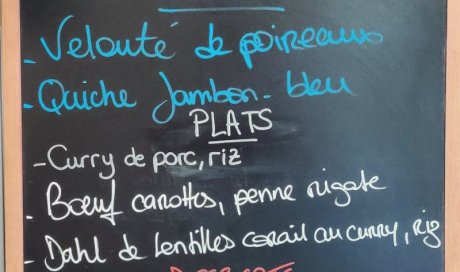 - Velouté de poireaux
- Quiche Jambon - bleu
PLATS
- Curry de porc, riz
- Bœuf carottes, penne rigate
- Dahl de lentilles corail au curry, riz